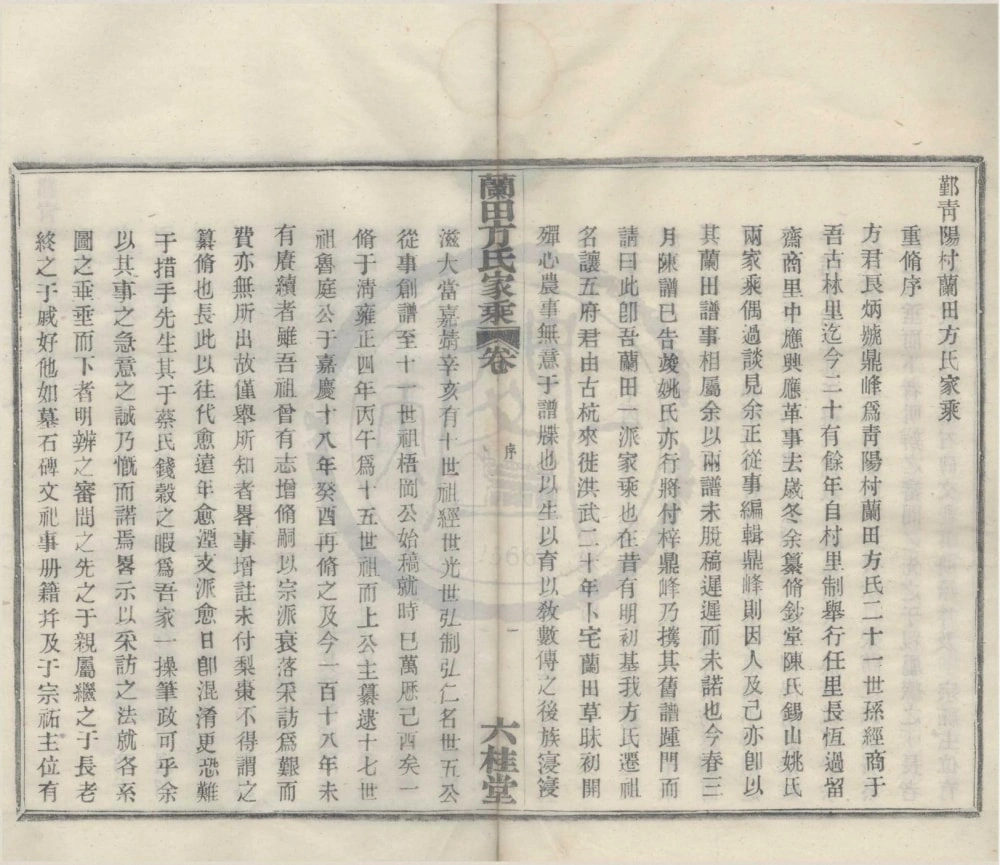 鄞靑陽村蘭田方氏家乘
重脩序
方君艮炳號鼎峰爲靑陽村蘭田方氏二十一世孫經商于
吾古林里迄今二十有餘年自村里制舉行任里長恆過留
齋商里中應興應革事去歲冬余纂脩鈔堂陳氏錫山姚氏
兩家乘偶過談見余正從事編輯鼎峰則因人及己亦卽以
其蘭田譜事相屬余以兩譜未脫稿遲遲而未諾也今春三
月陳譜已告竣姚氏亦行將付梓鼎峰乃携其舊譜踵門而
請曰此卽吾蘭田一派家乘也在昔有明初基我方氏遷祖
名讓五府君由古杭來徙洪武二十年卜宅蘭田草昧初開
殫心農事無意于譜牒也以生以育以敎數傳之後族寖寖
蘭田方氏家乘
卷
序
一
六桂堂
滋大當嘉靖辛亥有十世祖經世光世弘制弘仁名世五公
從事創譜至十一世祖梧岡公始稿就時巳萬厯己酉矣一
脩于淸雍正四年丙午爲十五世祖而上公主纂逮十七世
祖魯庭公于嘉慶十八年癸酉再脩之及今一百十八年未
有賡續者雖吾祖曾有志增脩嗣以宗派衰落采訪爲艱而
費亦無所出故僅舉所知者畧事增註未付梨棗不得謂之
纂脩也長此以往代愈遠年愈湮支派愈日卽混淆更恐難
于措手先生其于蔡氏錢穀之暇爲吾家一操筆政可乎余
以其事之急意之誠乃慨而諾焉畧示以采訪之法就各系
圖之垂垂而下者明辨之審問之先之于親屬繼之于長老
終之于戚好他如墓石碑文祀事册籍幷及于宗祏主位有